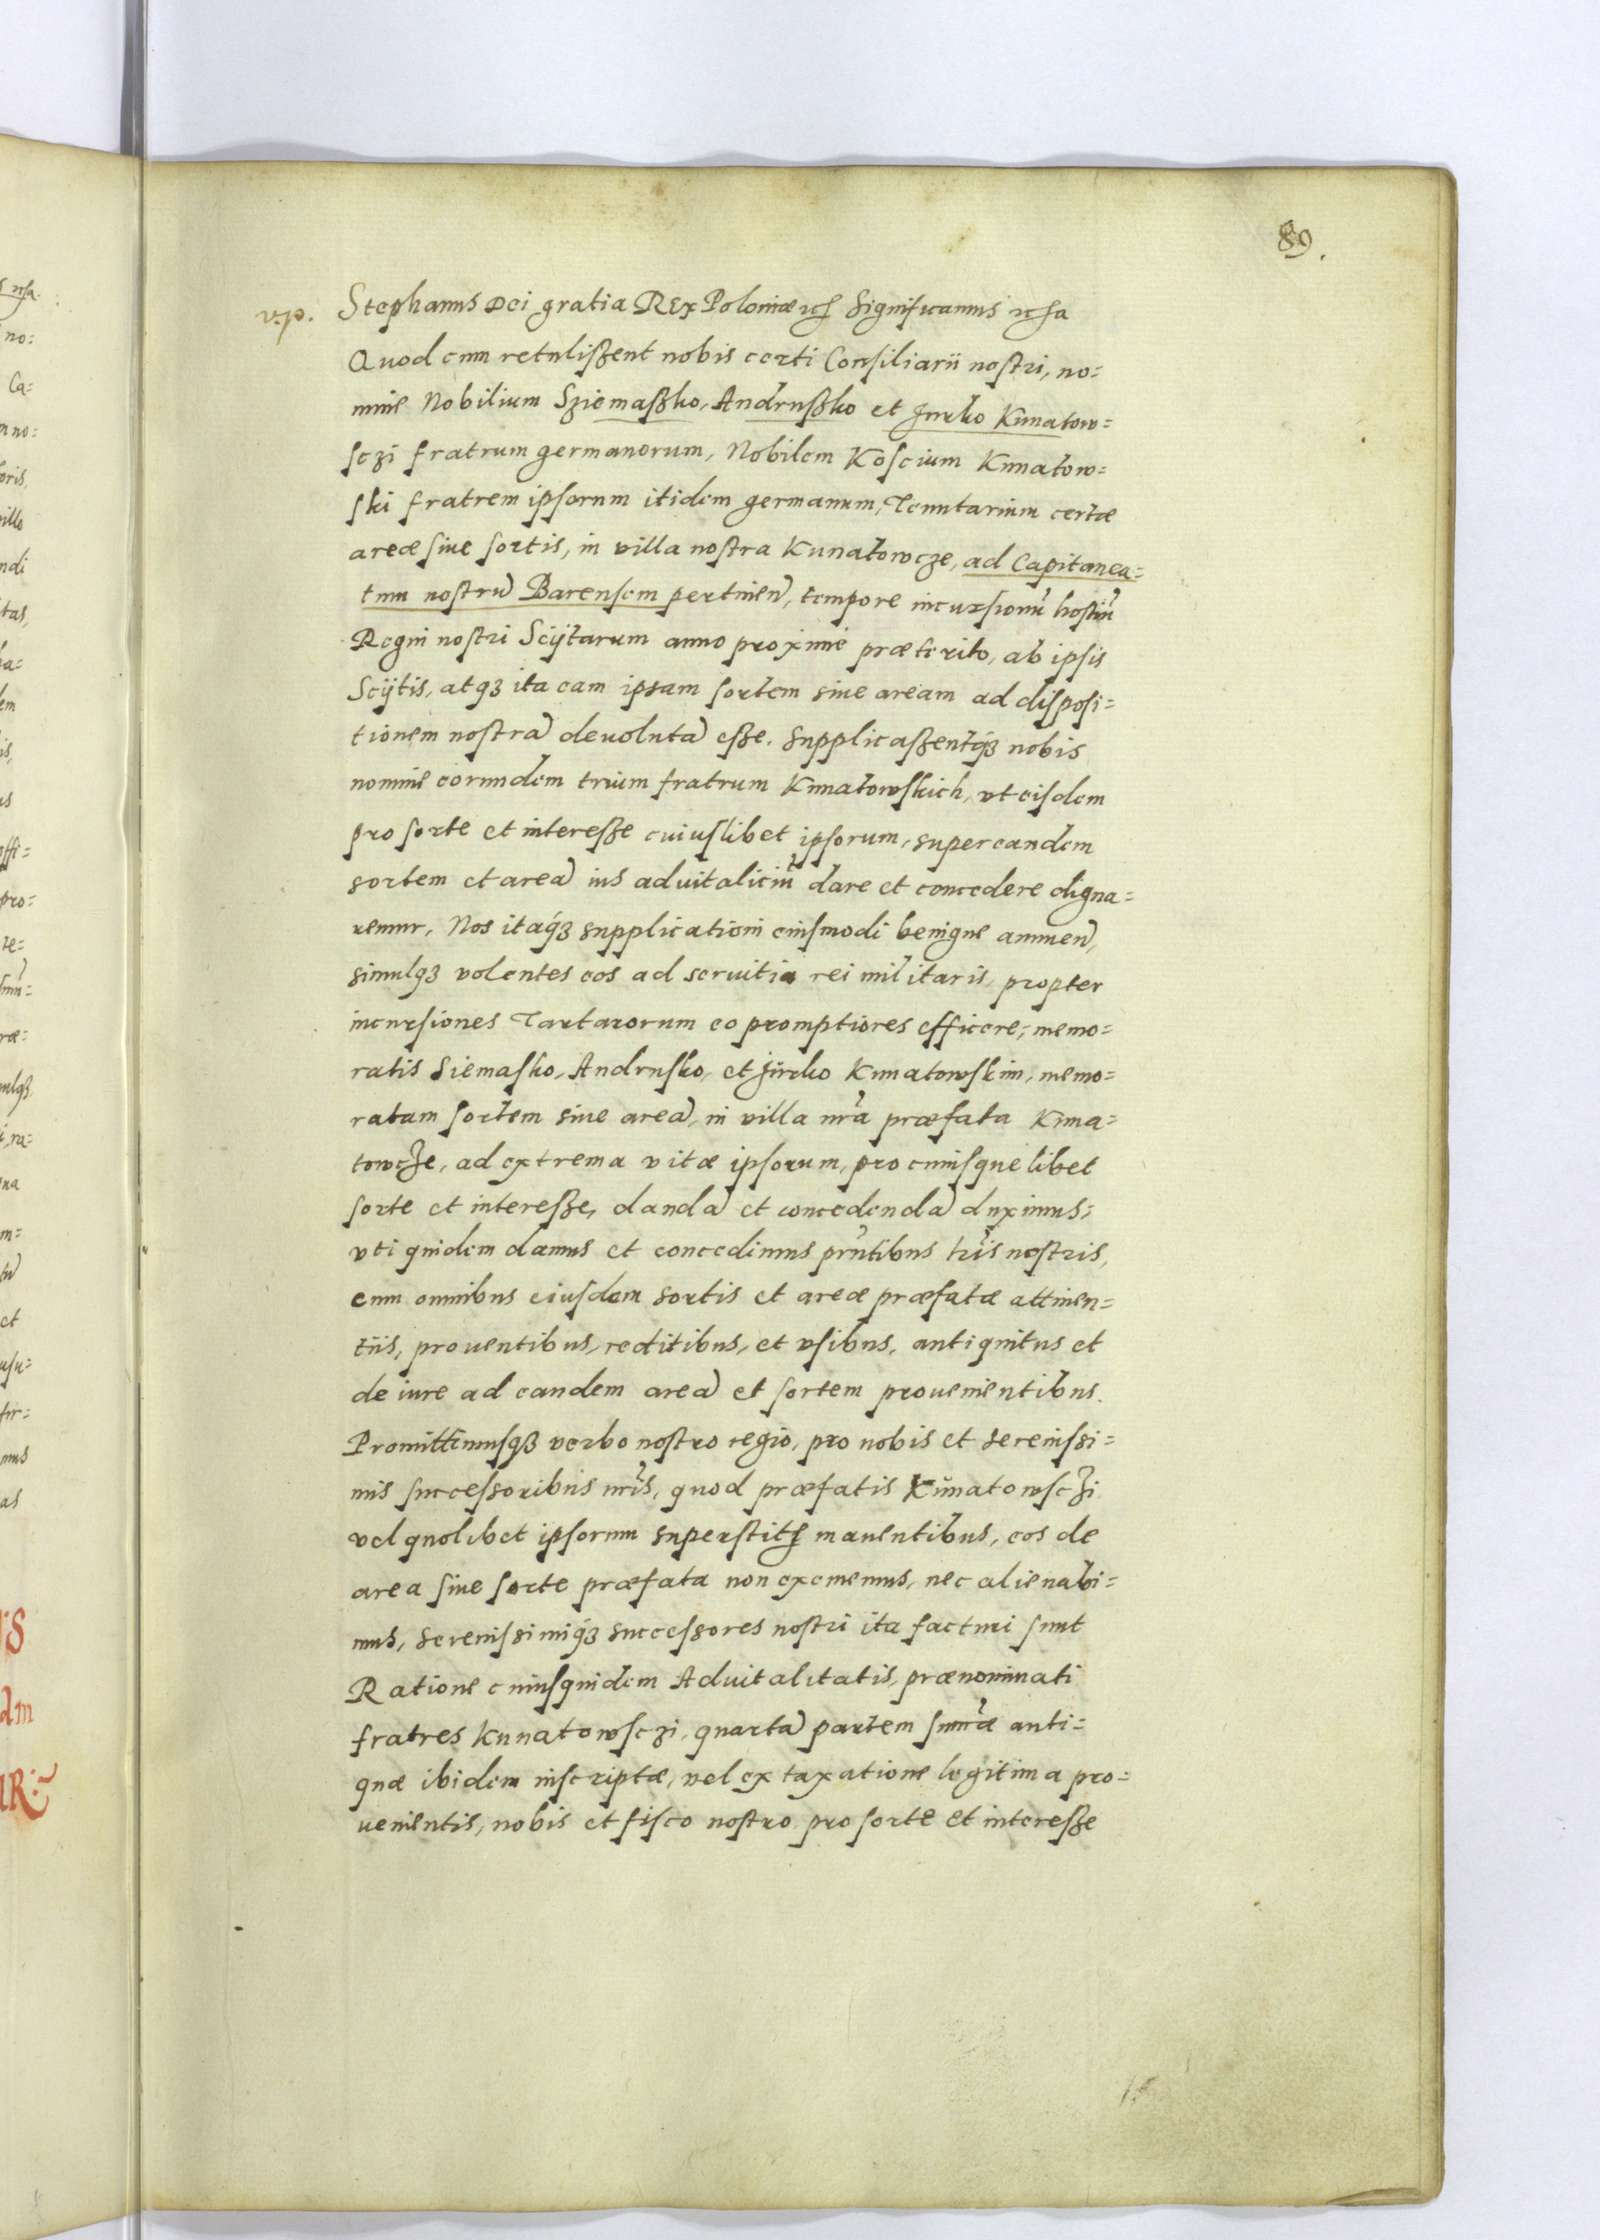 89.
v.p. Stephanus Dei gratia REx Poloniæ etc̃ Significamus etc̃sa
Quod cum retulißent nobis certi Consiliarii nostri, no=
mine Nobilium Sziemaßko, Andrußko et Jurko Kunatow=
sczi fratrum germanorum, Nobilem Koscium Kunatow=
ski fratrem ipsorum itidem germanum, Tenutarium certæ
areæ siue sortis, in villa nostra Kunatowcze, ad Capitanea=
tum nostrũ Barensem pertineñ, tempore incursionũ hostiũ
Regni nostri Scijtarum anno proxime præterito, ab ipsis
Scijtis, atqꝫ ita eam ipsam sortem siue aream ad disposi=
tionem nostrã deuolutã eße. Supplicaßentqꝫ nobis
nomine eorundem trium fratrum Kunatowskich, vt eisdem
pro sorte et intereße cuiuslibet ipsorum, super eandem
sortem et areã ius aduitaliciũ dare et concedere digna=
remur, Nos itaqꝫ supplicationi eiusmodi benigne annueñ,
simulqꝫ volentes eos ad seruitia rei militaris, propter
incursiones Tartarorum eo promptiores efficere, memo=
ratis Siemasko, Andrusko, et Jurko Kunatowskim, memo=
ratam sortem siue areã, in villa nr̃a præfata Kuna=
towcze, ad extrema vitæ ipsorum, pro cuiusque libet
sorte et intereße, dandã et concedendã duximus,
vti quidem damus et concedimus pr̃ntibus lr̃is nostris,
cum omnibus eiusdem sortis et areæ præfatæ attinen=
tiis, prouentibus, reditibus, et vsibus, antiquitus et
de iure ad eandem areã et sortem prouenientibus.
Promittimusqꝫ verbo nostro regio, pro nobis et serenissi=
mis successoribus nr̃is, quod præfatis Kunatowsczi
vel quolibet ipsorum superstitẽ manentibus, eos de
area siue sorte præfata non eximemus, nec alienabi=
mus, serenissimiqꝫ successores nostri ita facturi sunt
Ratione cuiusquidem Aduitalitatis, prænominati
fratres Kunatowsczi, quartã partem sum̃æ anti=
quæ ibidem inscriptæ, vel ex taxatione legitima pro=
uenientis, nobis et fisco nostro pro sorte et intereße